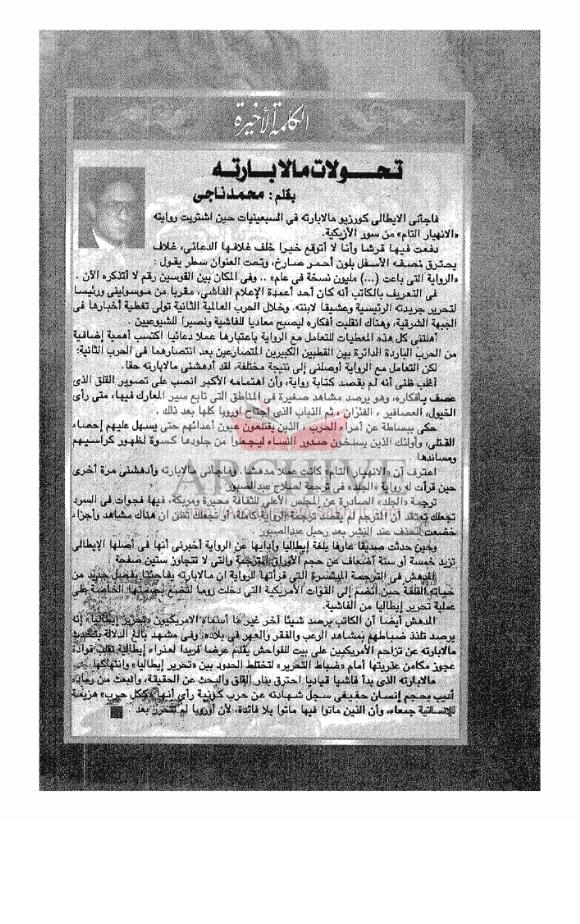 الكلمة الأخيرة
تحولات مالابارته
بقلم : محمد ناجى
فاجأنى الايطالى كورزيو مالابارته فى السبعينيات حين اشتريت روايته
«الانهيار التام» من سور الأزبكية.
دفعت فيها قرشا وأنا لا أتوقع خيرا خلف غلافها الدعائى، غلاف
يحترق نصفه الأسفل بلون أحمر صارخ، وتحت العنوان سطر يقول :
«الرواية التى باعت (...) مليون نسخة فى عام» .. وفى المكان بين القوسين رقم لا أتذكره الآن .
فى التعريف بالكاتب أنه كان أحد أعمدة الإعلام الفاشى، مقربا من موسولينى ورئيسا
لتحرير جريدته الرئيسية وعشيقا لابنته. وخلال الحرب العالمية الثانية تولى تغطية أخبارها فى
الجبهة الشرقية، وهناك انقلبت أفكاره ليصبح معاديا للفاشية ونصيرا للشيوعيين .
أهلتنى كل هذه المعطيات للتعامل مع الرواية باعتبارها عملا دعائيا اكتسب أهمية إضافية
من الحرب الباردة الدائرة بين القطبين الكبيرين المتصارعين بعد انتصارهما فى الحرب الثانية:
لكن التعامل مع الرواية أوصلنى إلى نتيجة مختلفة، لقد أدهشنى مالابارته حقا .
أغلب ظنى أنه لم يقصد كتابة رواية، وأن اهتمامه الأكبر انصب على تصوير القلق الذى
عصف بأفكاره، وهو يرصد مشاهد صغيرة فى المناطق التى تابع سير المعارك فيها، متى رأى
الخيول، العصافير ، الفئران ، ثم الذباب الذى اجتاح أوروبا كلها بعد ذلك .
حكى ببساطة عن أمراء الحرب ، الذين يقتلعون عيون أعدائهم حتى يسهل عليهم إحصاء
القتلى، وأولئك الذين يسلخون صدور النساء ليجعلوا من جلودها كسوة لظهور كراسيهم
ومساندها
اعترف أن «الانهيار التام» كانت عملا مدهشا، وفاجأنى مالابارته وأدهشنى مرة أخرى
حين قرأت له رواية «الجلد» فى ترجمة لصلاح عبدالصبور .
ترجمة «الجلد» الصادرة عن المجلس الأعلى للثقافة محيرة ومربكة، فيها فجوات فى السرد
تجعلك تعتقد أن المترجم لم يقصد ترجمة الرواية كاملة، أو تجعلك تظن أن هناك مشاهد وأجزاء
خضعت للحذف عند النشر بعد رحيل عبدالصبور .
وحين حدثت صديقا عارفا بلغة إيطاليا وآدابها عن الرواية أخبرنى أنها فى أصلها الإيطالى
تزيد خمسة أو ستة أضعاف عن حجم الأوراق المترجمة والتى لا تتجاوز ستين صفحة
المدهش فى الترجمة المبتسرة التى قرأتها للرواية ان مالابارته يفاجئنا بفصل جديد من
حياته القلقة حين انضم إلى القوات الأمريكية التى دخلت روما لتضع بصمتها الخاصة على
عملية تحرير إيطاليا من الفاشية.
المدهش أيضا أن الكاتب يرصد شيئا آخر غير ما أسماه الأمريكيون «تحرير إيطاليا» إنه
يرصد تلذذ ضباطهم بمشاهد الرعب والفقر والعهر فى بلاده، وفى مشهد بالغ الدلالة يتحدث
مالابارته عن تزاحم الأمريكيين على بيت للفواحش يقدم عرضا فريدا لعذراء إيطالية تقلب قوادة
عجوز مكامن عذريتها أمام «ضباط التحرير» لتختلط الحدود بين «تحرير إيطاليا» وانتهاكها .
مالابارته الذى بدأ فاشيا قياديا احترق بنار القلق والبحث عن الحقيقة، وانبعث من رماده
أديب بحجم إنسان حقيقى سجل شهادته عن حرب كونية رأى أنها «ككل حرب» هزيمة
للإنسانية جمعاء، وأن الذين ماتوا فيها ماتوا بلا فائدة، لأن أوروبا لم تتحرر بعد .
ARCHIVE